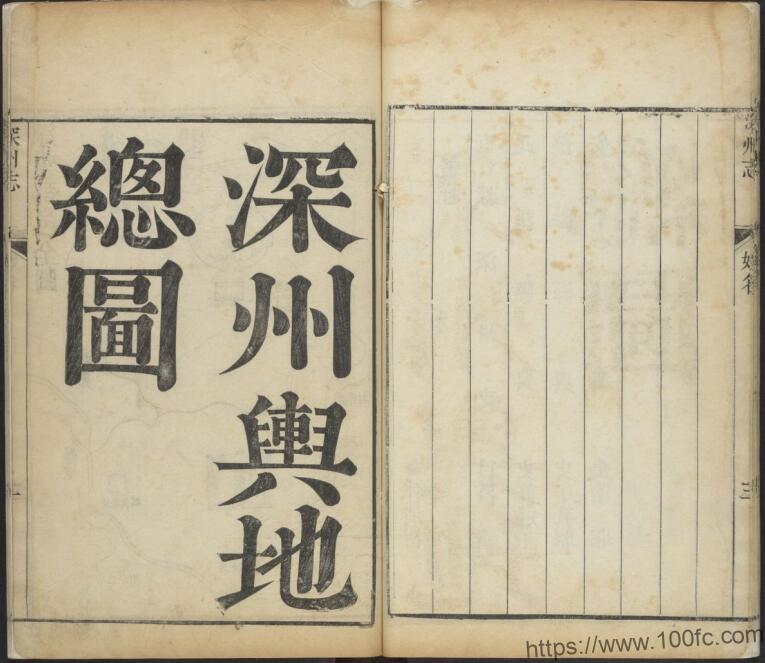 深州志
姓名
三
深州輿地
總圖
深州志
https://www.100fc.com